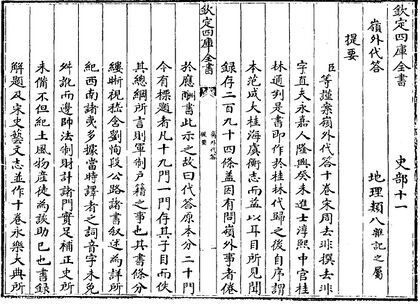 欽定四庫全書　史部十一
嶺外代答　地理類八雜記之屬
提要
臣等謹案嶺外代答十卷宋周去非撰去非
字直夫永嘉人隆興癸未進士淳熙中官桂
林通判是書即作於桂林代歸之後自序謂
本范成大桂海虞衡志而益以耳目所見聞
錄存二百九十四條盖因有問嶺外事者倦
欽定四庫全書
嶺外代答
提要
於應酬書此示之故曰代答原本分二十門
今有標題者凡十九門一門存其子目而佚
其總綱所言則軍制户籍之事也其書條分
縷晰視嵇含劉恂段公路諸書叙述為詳所
紀西南諸夷多據當時譯者之詞音字未免
舛訛而邊帥法制財計諸門實足補正史所
未備不但紀土風物産徒為談助已也書錄
解題及宋史藝文志並作十卷永樂大典所